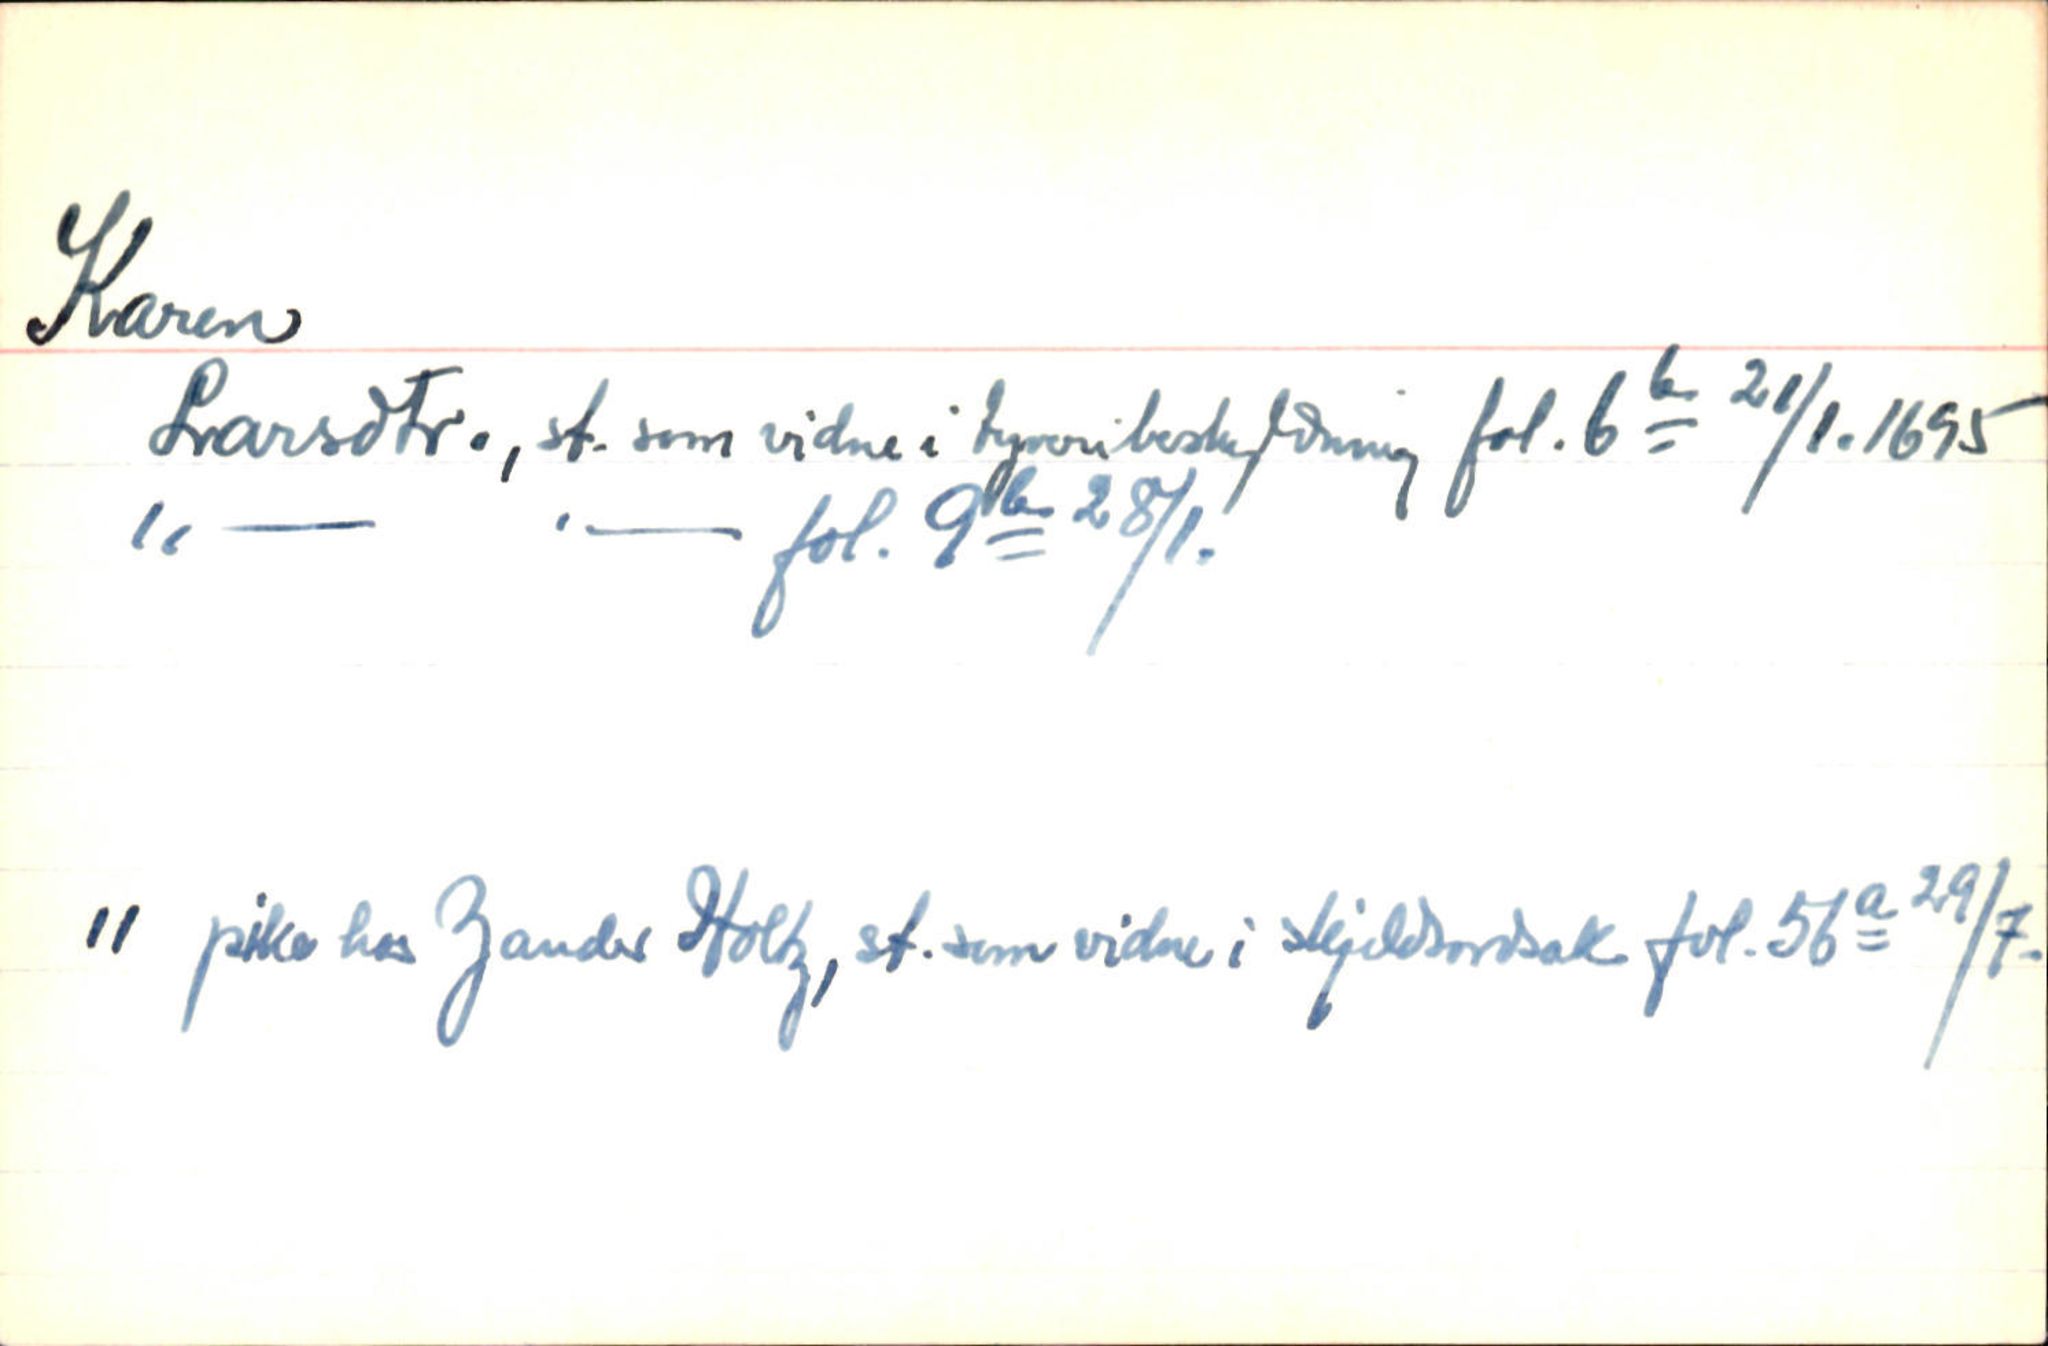 Karen
Larsdtr., st. som vidne i tyveribeskyldning fol. 6 b 21/1. 1695
"— "— fol. 9 b 28/1.
" pike hos Zander Holtz, st. som vidne i skjeldsordsak fol. 56 a 29/7.